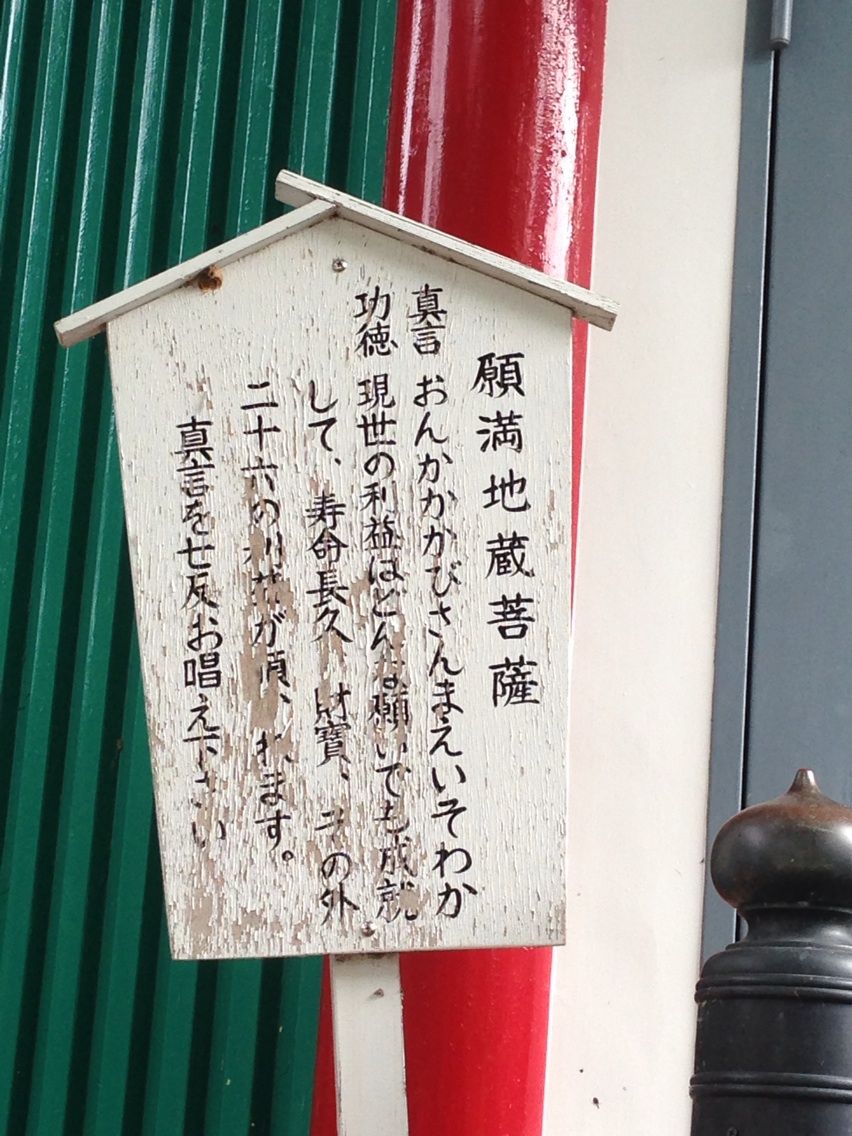 願満地蔵菩薩
真言 おんかかかびさんまえいそわか
功徳 現世の利益はどんな願いでも成就
して、寿命長久、財寶、その外
二十六の利益が頂、れます。
真言を七反お唱え下さい